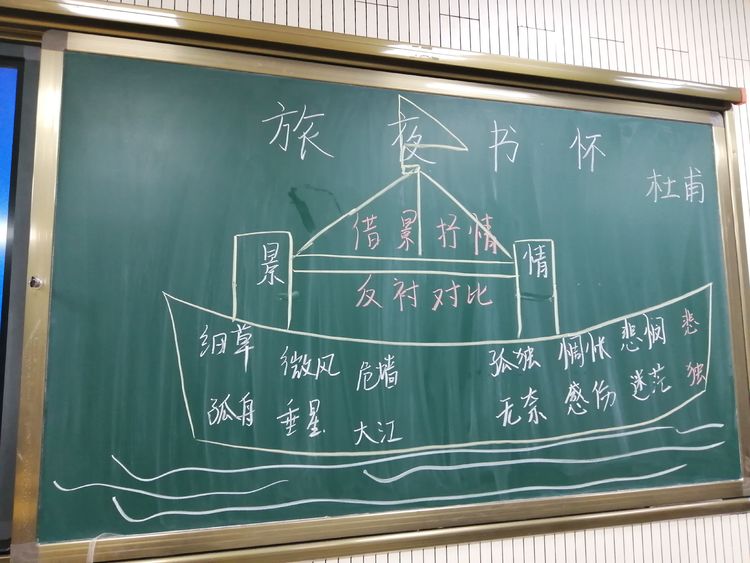 旅夜书怀
杜甫
借景抒情
景
情
反衬对比
细草 微风 危墙
孤独 惆怅 悲悯 悲
孤舟 垂星 大江
无奈 感伤 迷茫 独